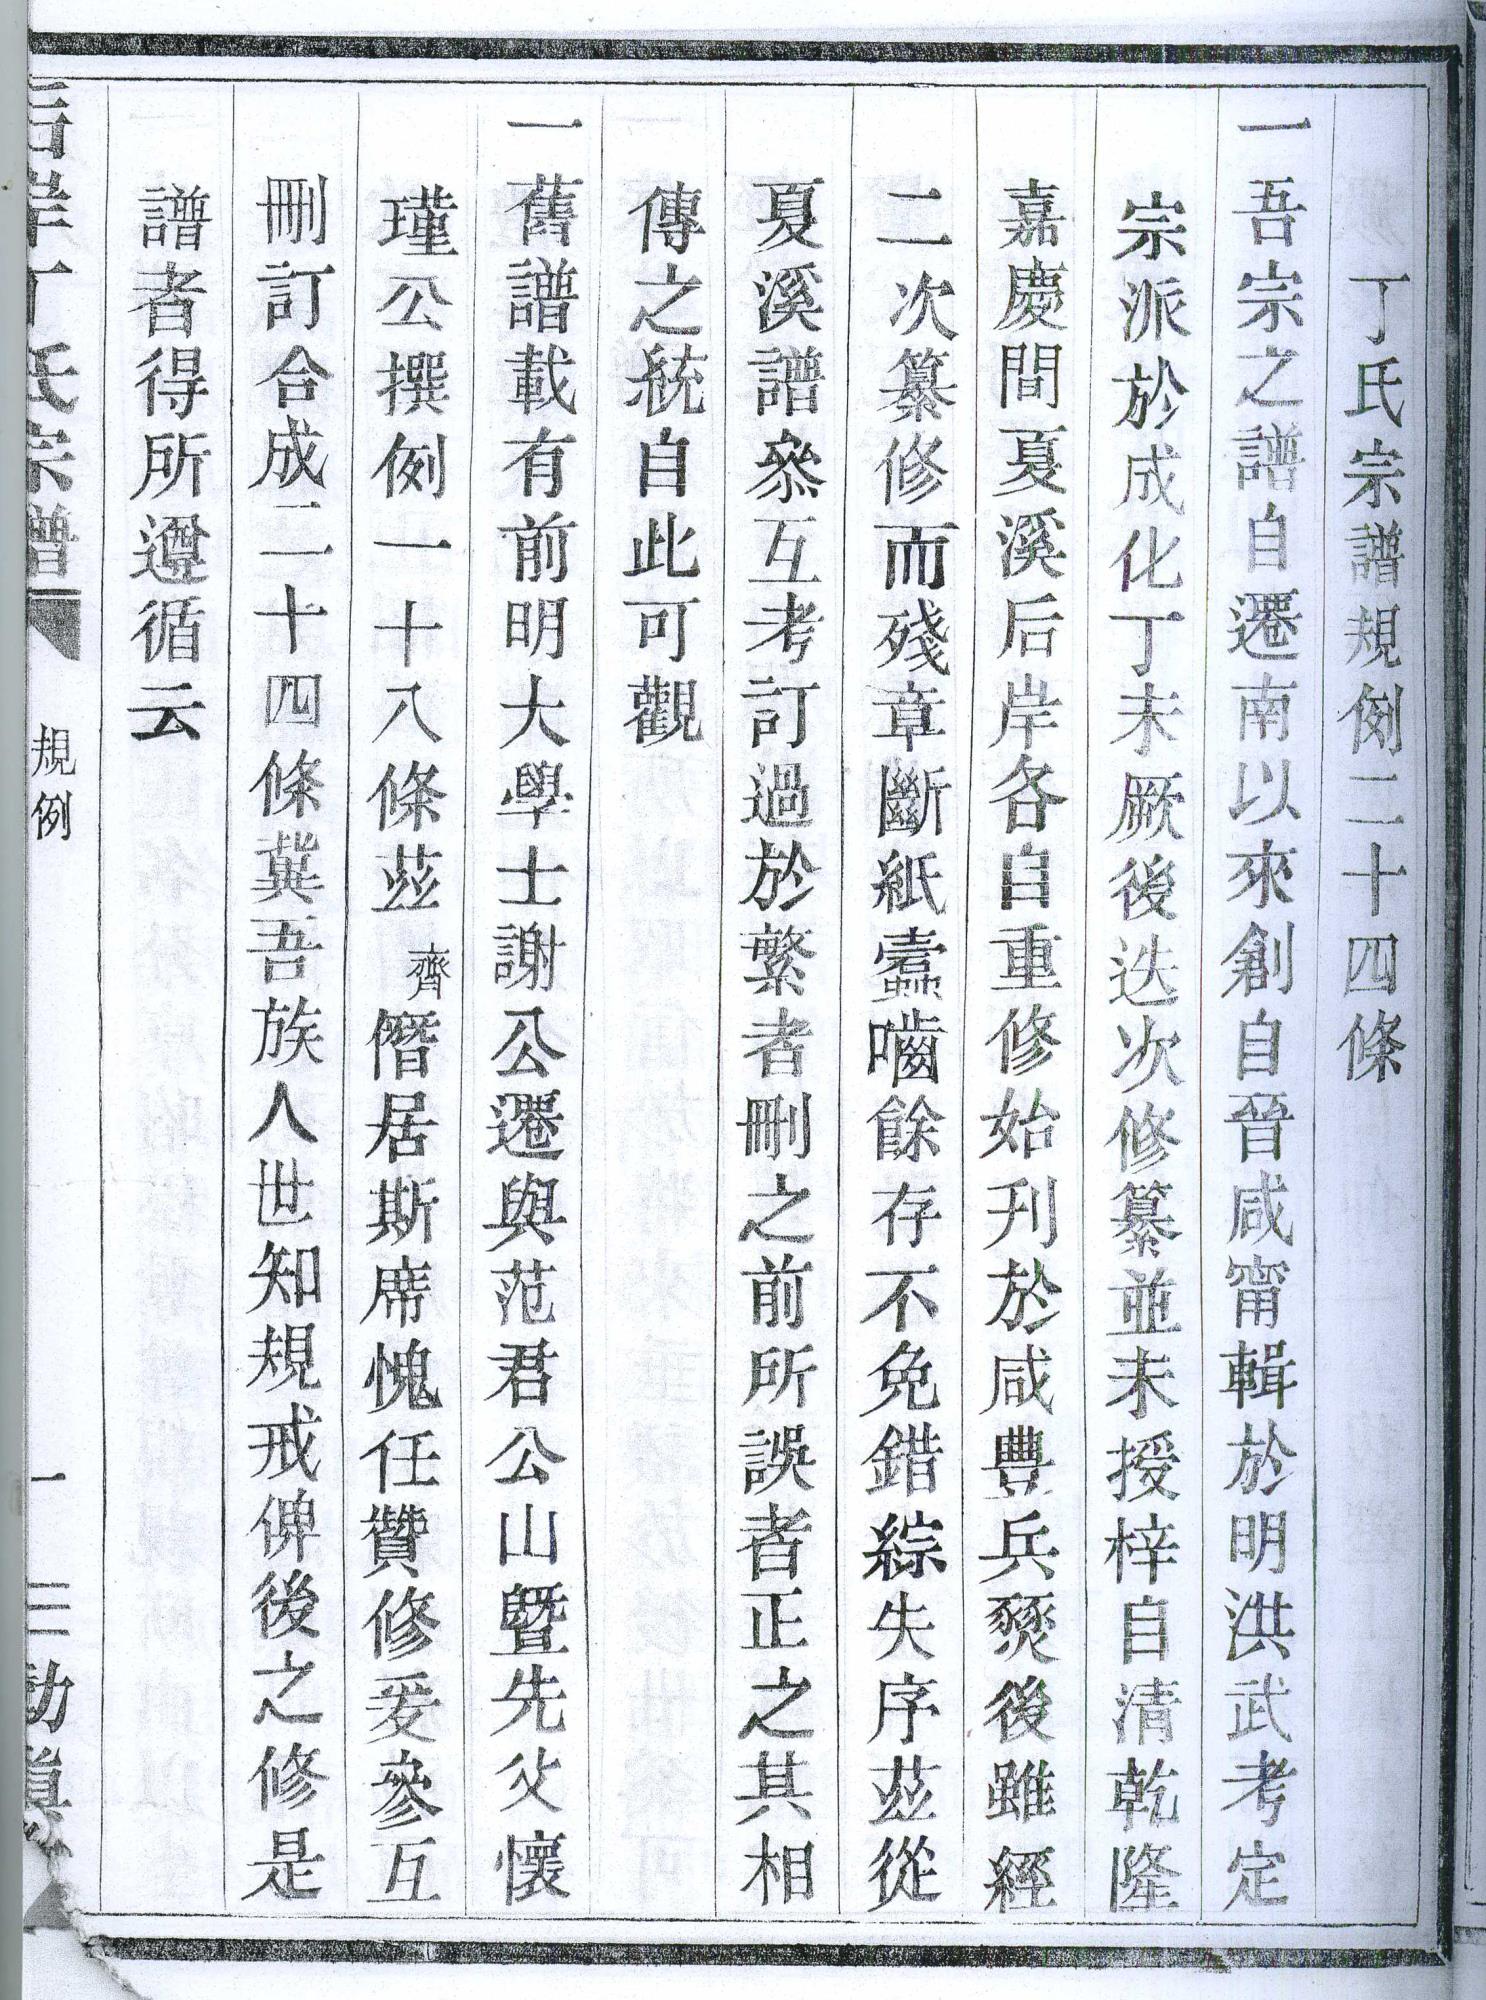 丁氏宗譜規例二十四條
一吾宗之譜自遷南以來創自晉咸甯輯於明洪武考定
宗派於成化丁未厥後迭次修纂並未授梓自清乾隆
嘉慶間夏溪后岸各自重修始刋於咸豐兵燹後雖經
二次纂修而殘章斷紙蠹嚙餘存不免錯綜失序玆從
夏溪譜叅互考訂過於繁者刪之前所誤者正之其相
傳之統自此可觀
一舊譜載有前明大學士謝公遷與范君公山暨先父懷
瑾公撰例一十八條玆齊僭居斯席愧任贊修爰參互
刪訂合成二十四條冀吾族人世知規戒俾後之修是
譜者得所遵循云
后岸丁氏宗譜
規例
一
三